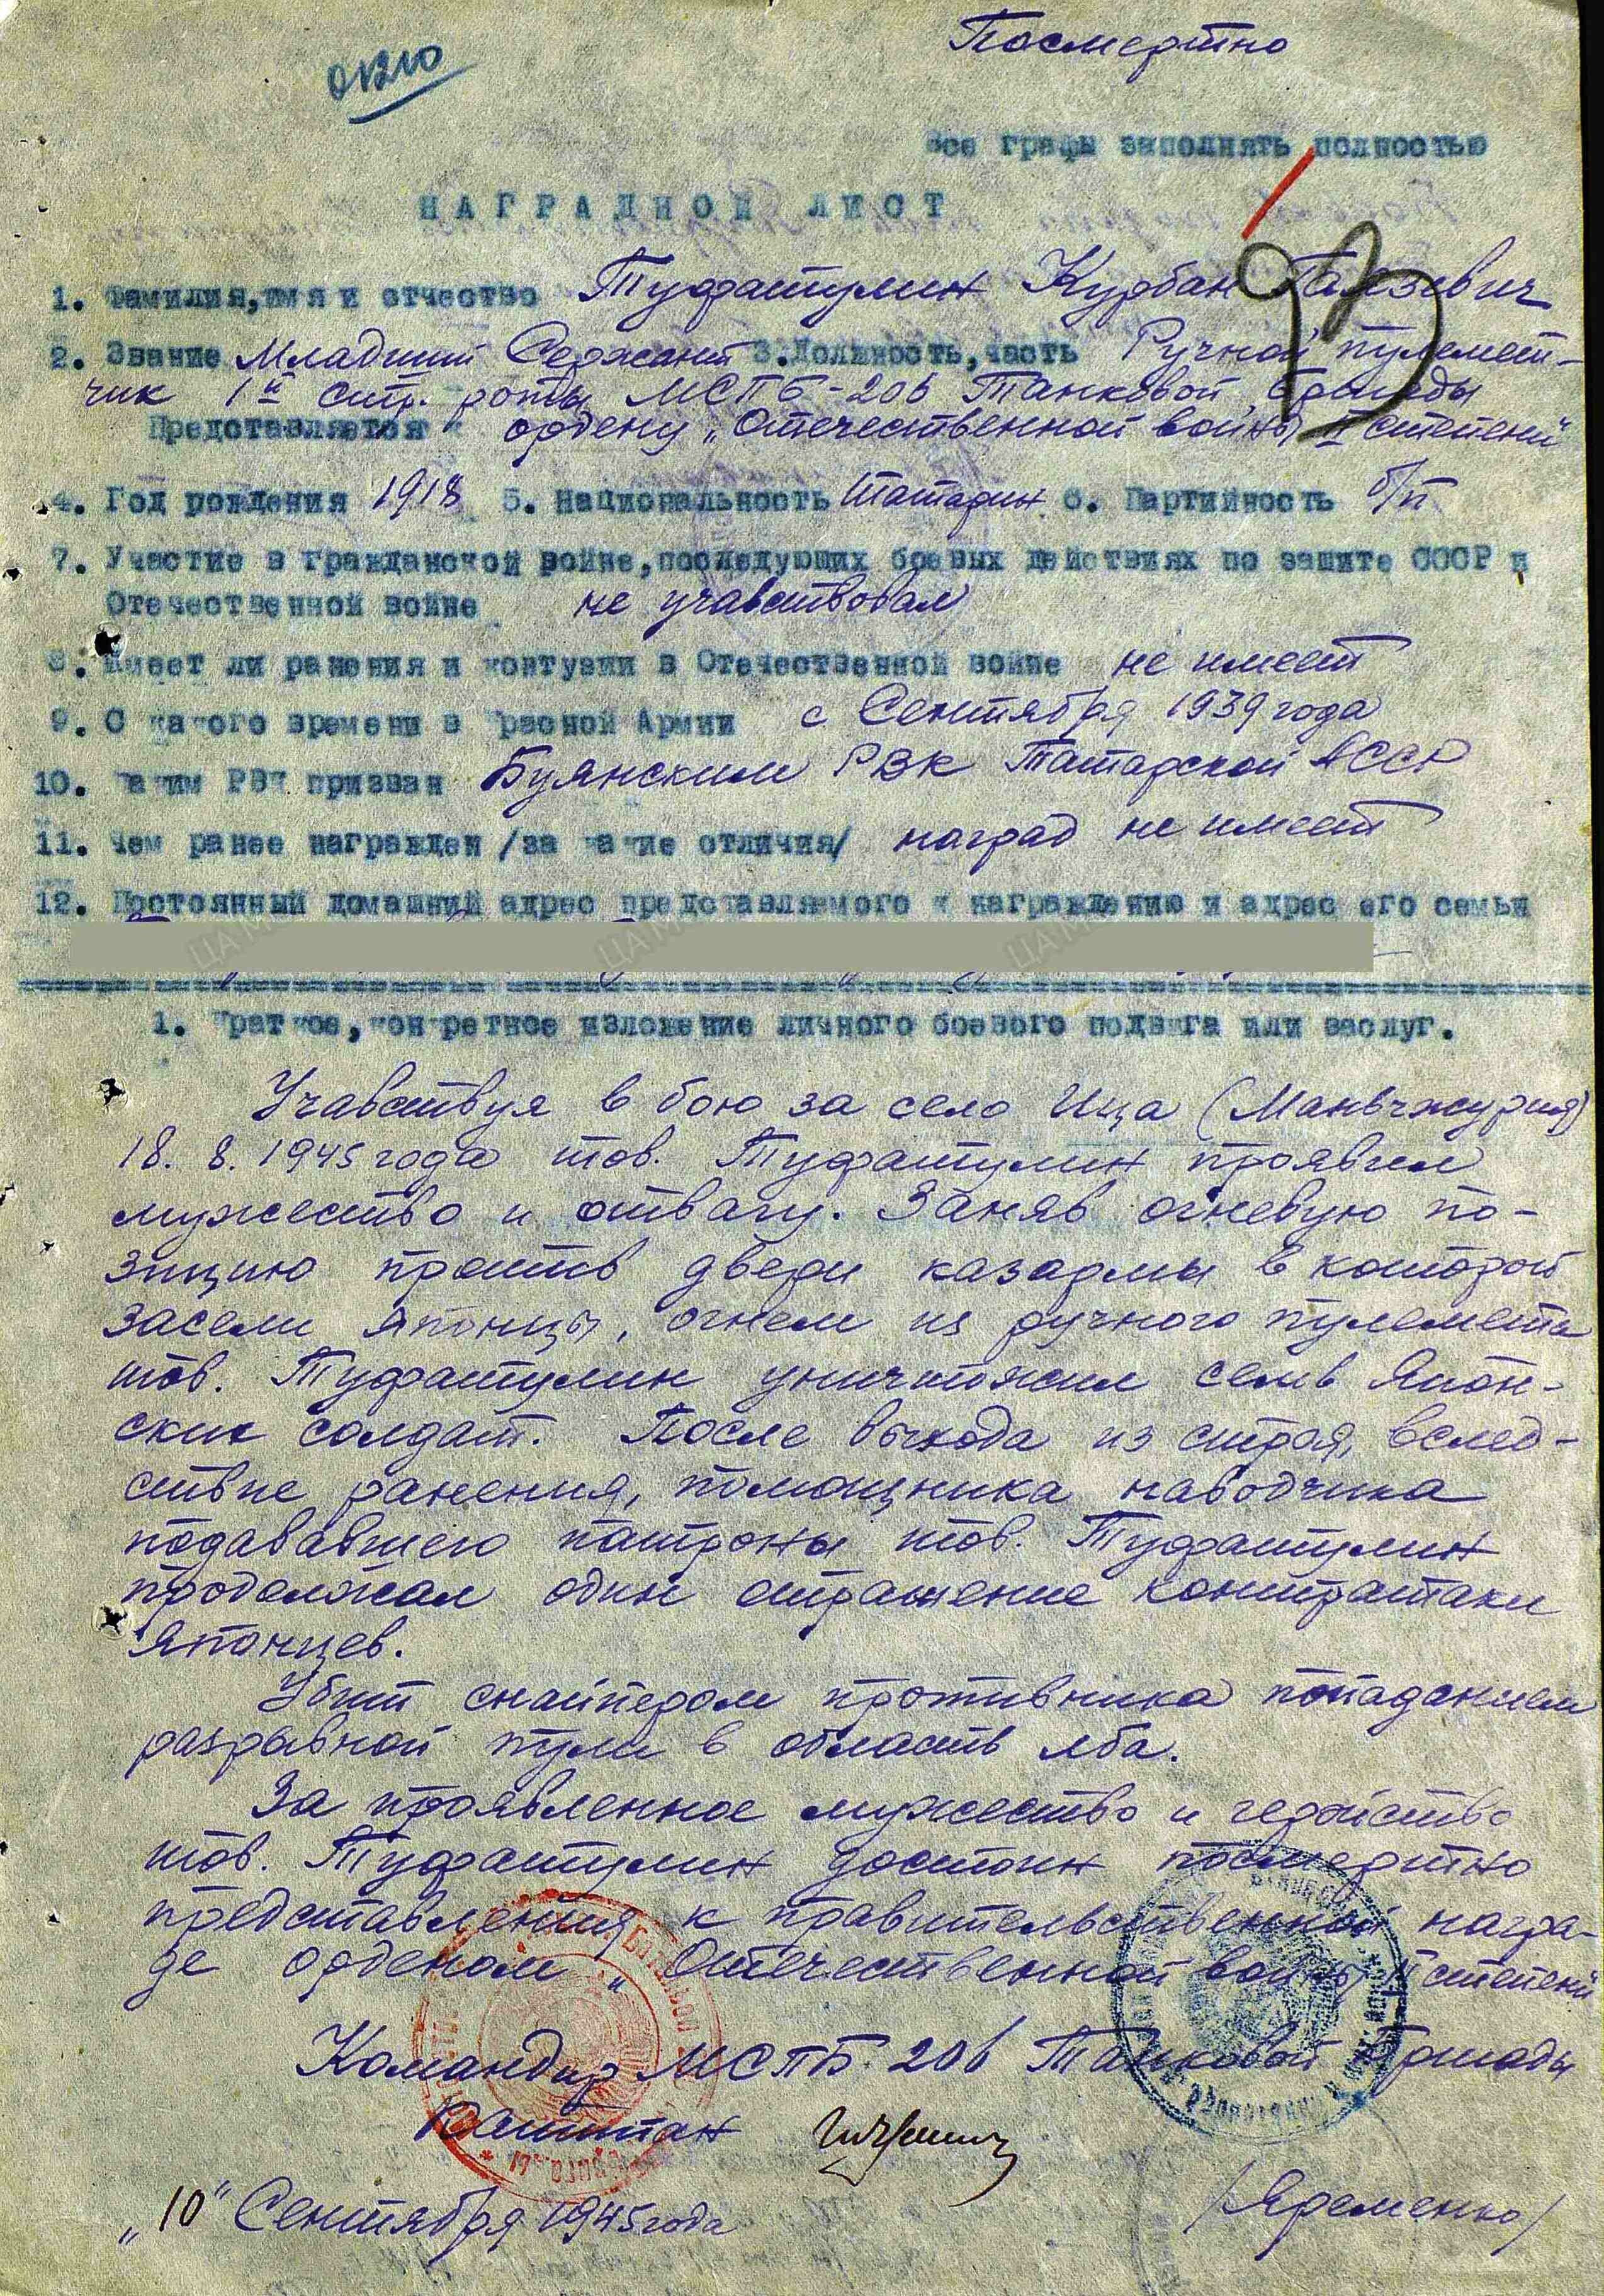 Посмертно
Все графы заполнять полностью
НАГРАДНОЙ ЛИСТ
1. Фамилия,имя и отчество Туфатулин Курбан
2. Звание Младший Сержант 3.Должность,часть Ручной пулемет-
чик 1й стр. роты МСПБ-206 Танковой бригады
Представляется к ордену „Отечественной войны II степени"
4. Год рождения 1918 5. Национальность татарин 6. Партийность б/п
7. Участие в гражданской войне,последующих боевых действиях по защите СССР и
Отечественной войне не учавствовал
8. Имеет ли ранения и контузии в Отечественной войне не имеет
9. С какого времени в Красной Армии с Сентября 1939 года
10. Каким РВК призван Буянским РВК Татарской АССР
11. Чем ранее награжден /за какие отличия/ наград не имеет
12. Постоянный домашний адрес представляемого к награждению и адрес его семьи
1. Краткое,конкретное изложение личного боевого подвига или заслуг.
Учавствуя в бою за село Ица (Маньчжурия)
18. 8. 1945 года тов. Туфатулин проявил
мужество и отвагу. Заняв огневую по-
зицию против двери казармы в которой
засели Японцы, огнем из ручного пулемета
тов. Туфатулин уничтожил семь Япон-
ских солдат. После выхода из строя, вслед-
ствие ранения, помощника наводчика
подававшего патроны тов. Туфатулин
продолжал один отражение контратаки
Японцев.
Убит снайпером противника попаданием
разрывной пули в область лба.
За проявленное мужество и геройство
тов. Туфатулин достоин посмертно
представления к правительственной награ-
де орденом „Отечественной войны II степени"
Командир МСПБ 206 Танковой Бригады
Капитан
/Яременко/
„10" Сентября 1945 года